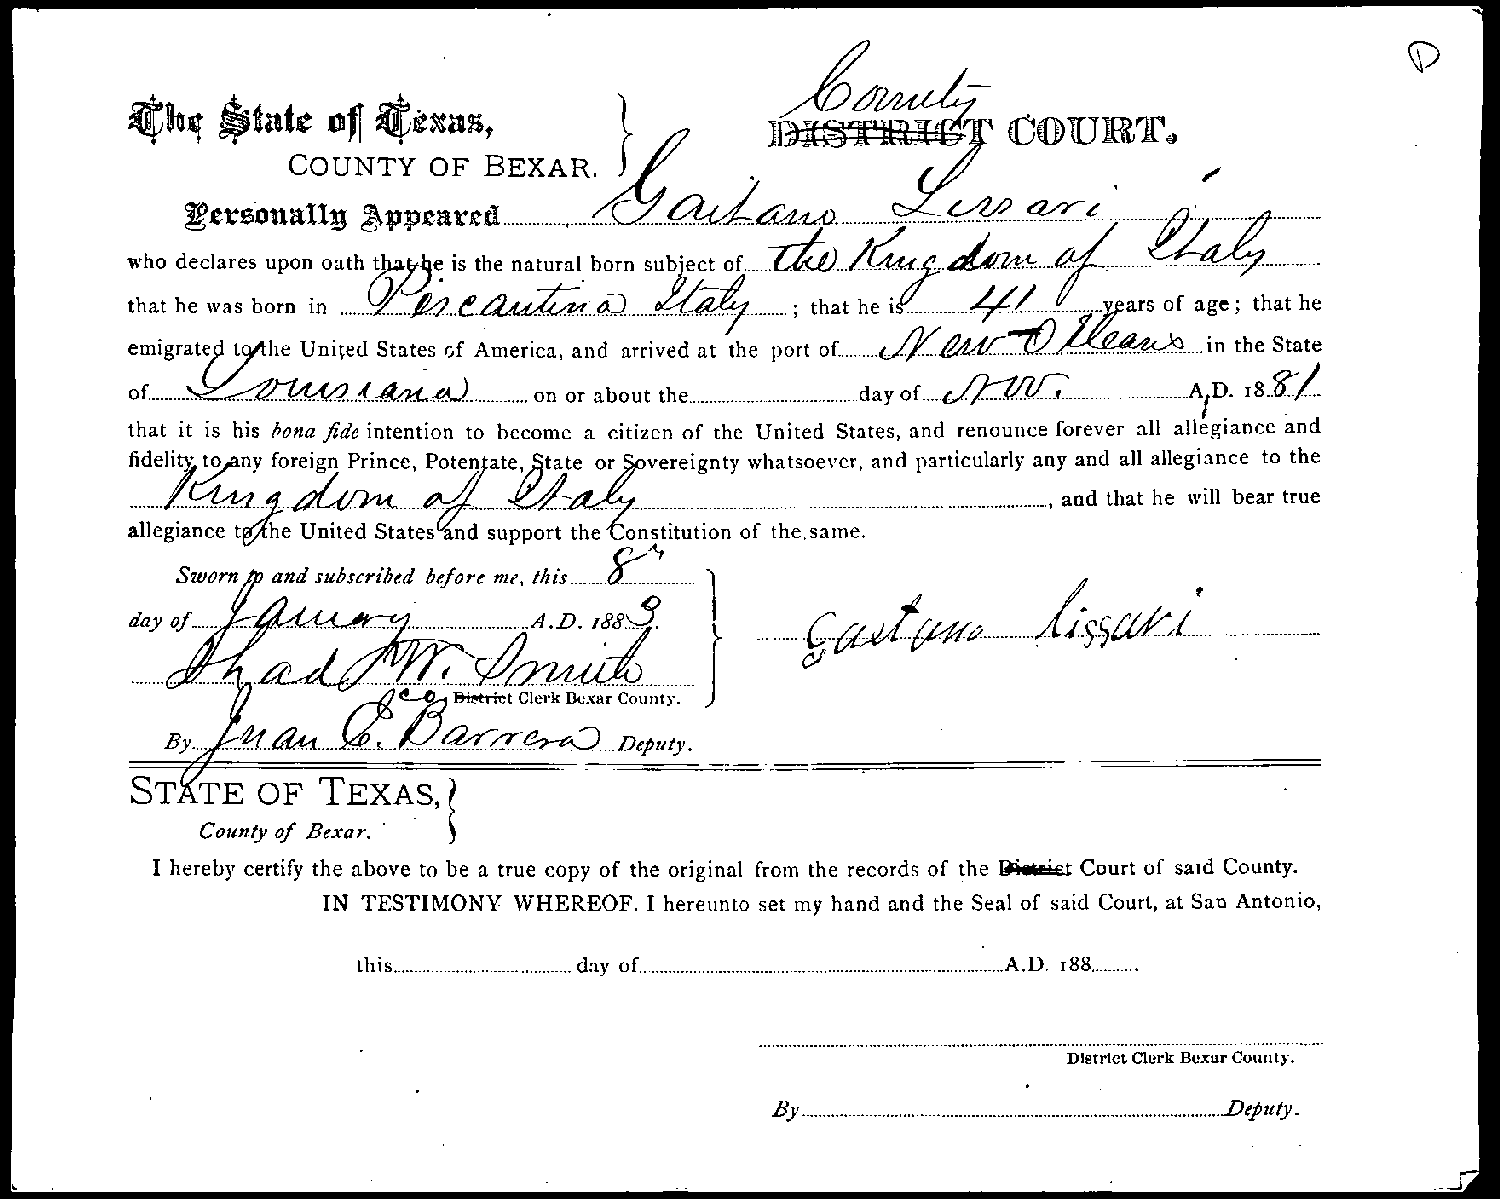 D
County
The State of Texas, DISTRICT COURT.
COUNTY OF BEXAR.
Personally Appeared Gaetano Lissari
who declares upon oath that he is the natural born subject of the Kingdom of Italy
that he was born in Pescantina Italy ; that he is 41 years of age; that he
emigrated to the United States of America, and arrived at the port of New Orleans in the State
of Louisiana on or about the day of Nov. A.D. 1881
that it is his bona fide intention to become a citizen of the United States, and renounce forever all allegiance and
fidelity to any foreign Prince, Potentate, State or Sovereignty whatsoever, and particularly any and all allegiance to the
Kingdom of Italy , and that he will bear true
allegiance to the United States and support the Constitution of the same.
Sworn to and subscribed before me, this 8th
day of January A.D. 1883. Gaetano Lissari
Thad W. Smith
Co. District Clerk Bexar County.
By Juan E. Barrera Deputy.
STATE OF TEXAS,
County of Bexar.
I hereby certify the above to be a true copy of the original from the records of the District Court of said County.
IN TESTIMONY WHEREOF. I hereunto set my hand and the Seal of said Court, at San Antonio,
this day of A.D. 188
District Clerk Bexar County.
By Deputy.